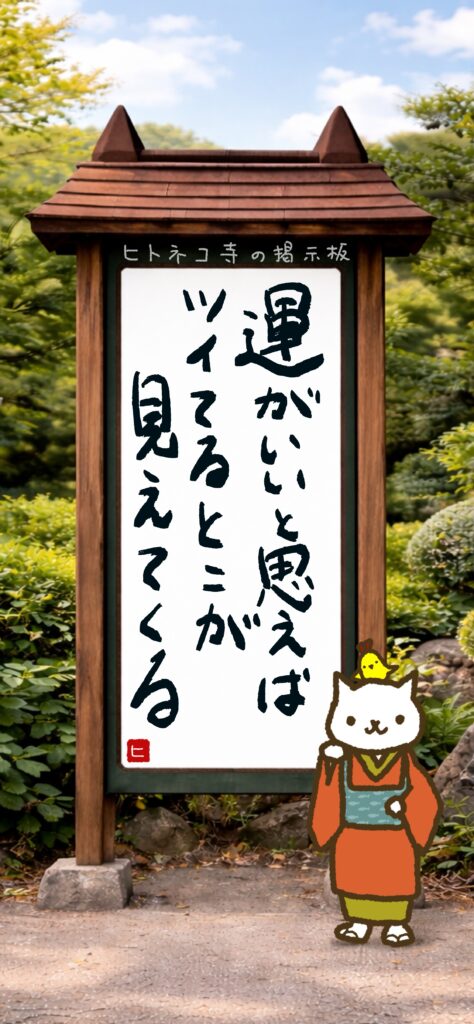 ヒトネコ寺の掲示板
運がいいと思えば
ツイてるとこが
見えてくる
ヒ